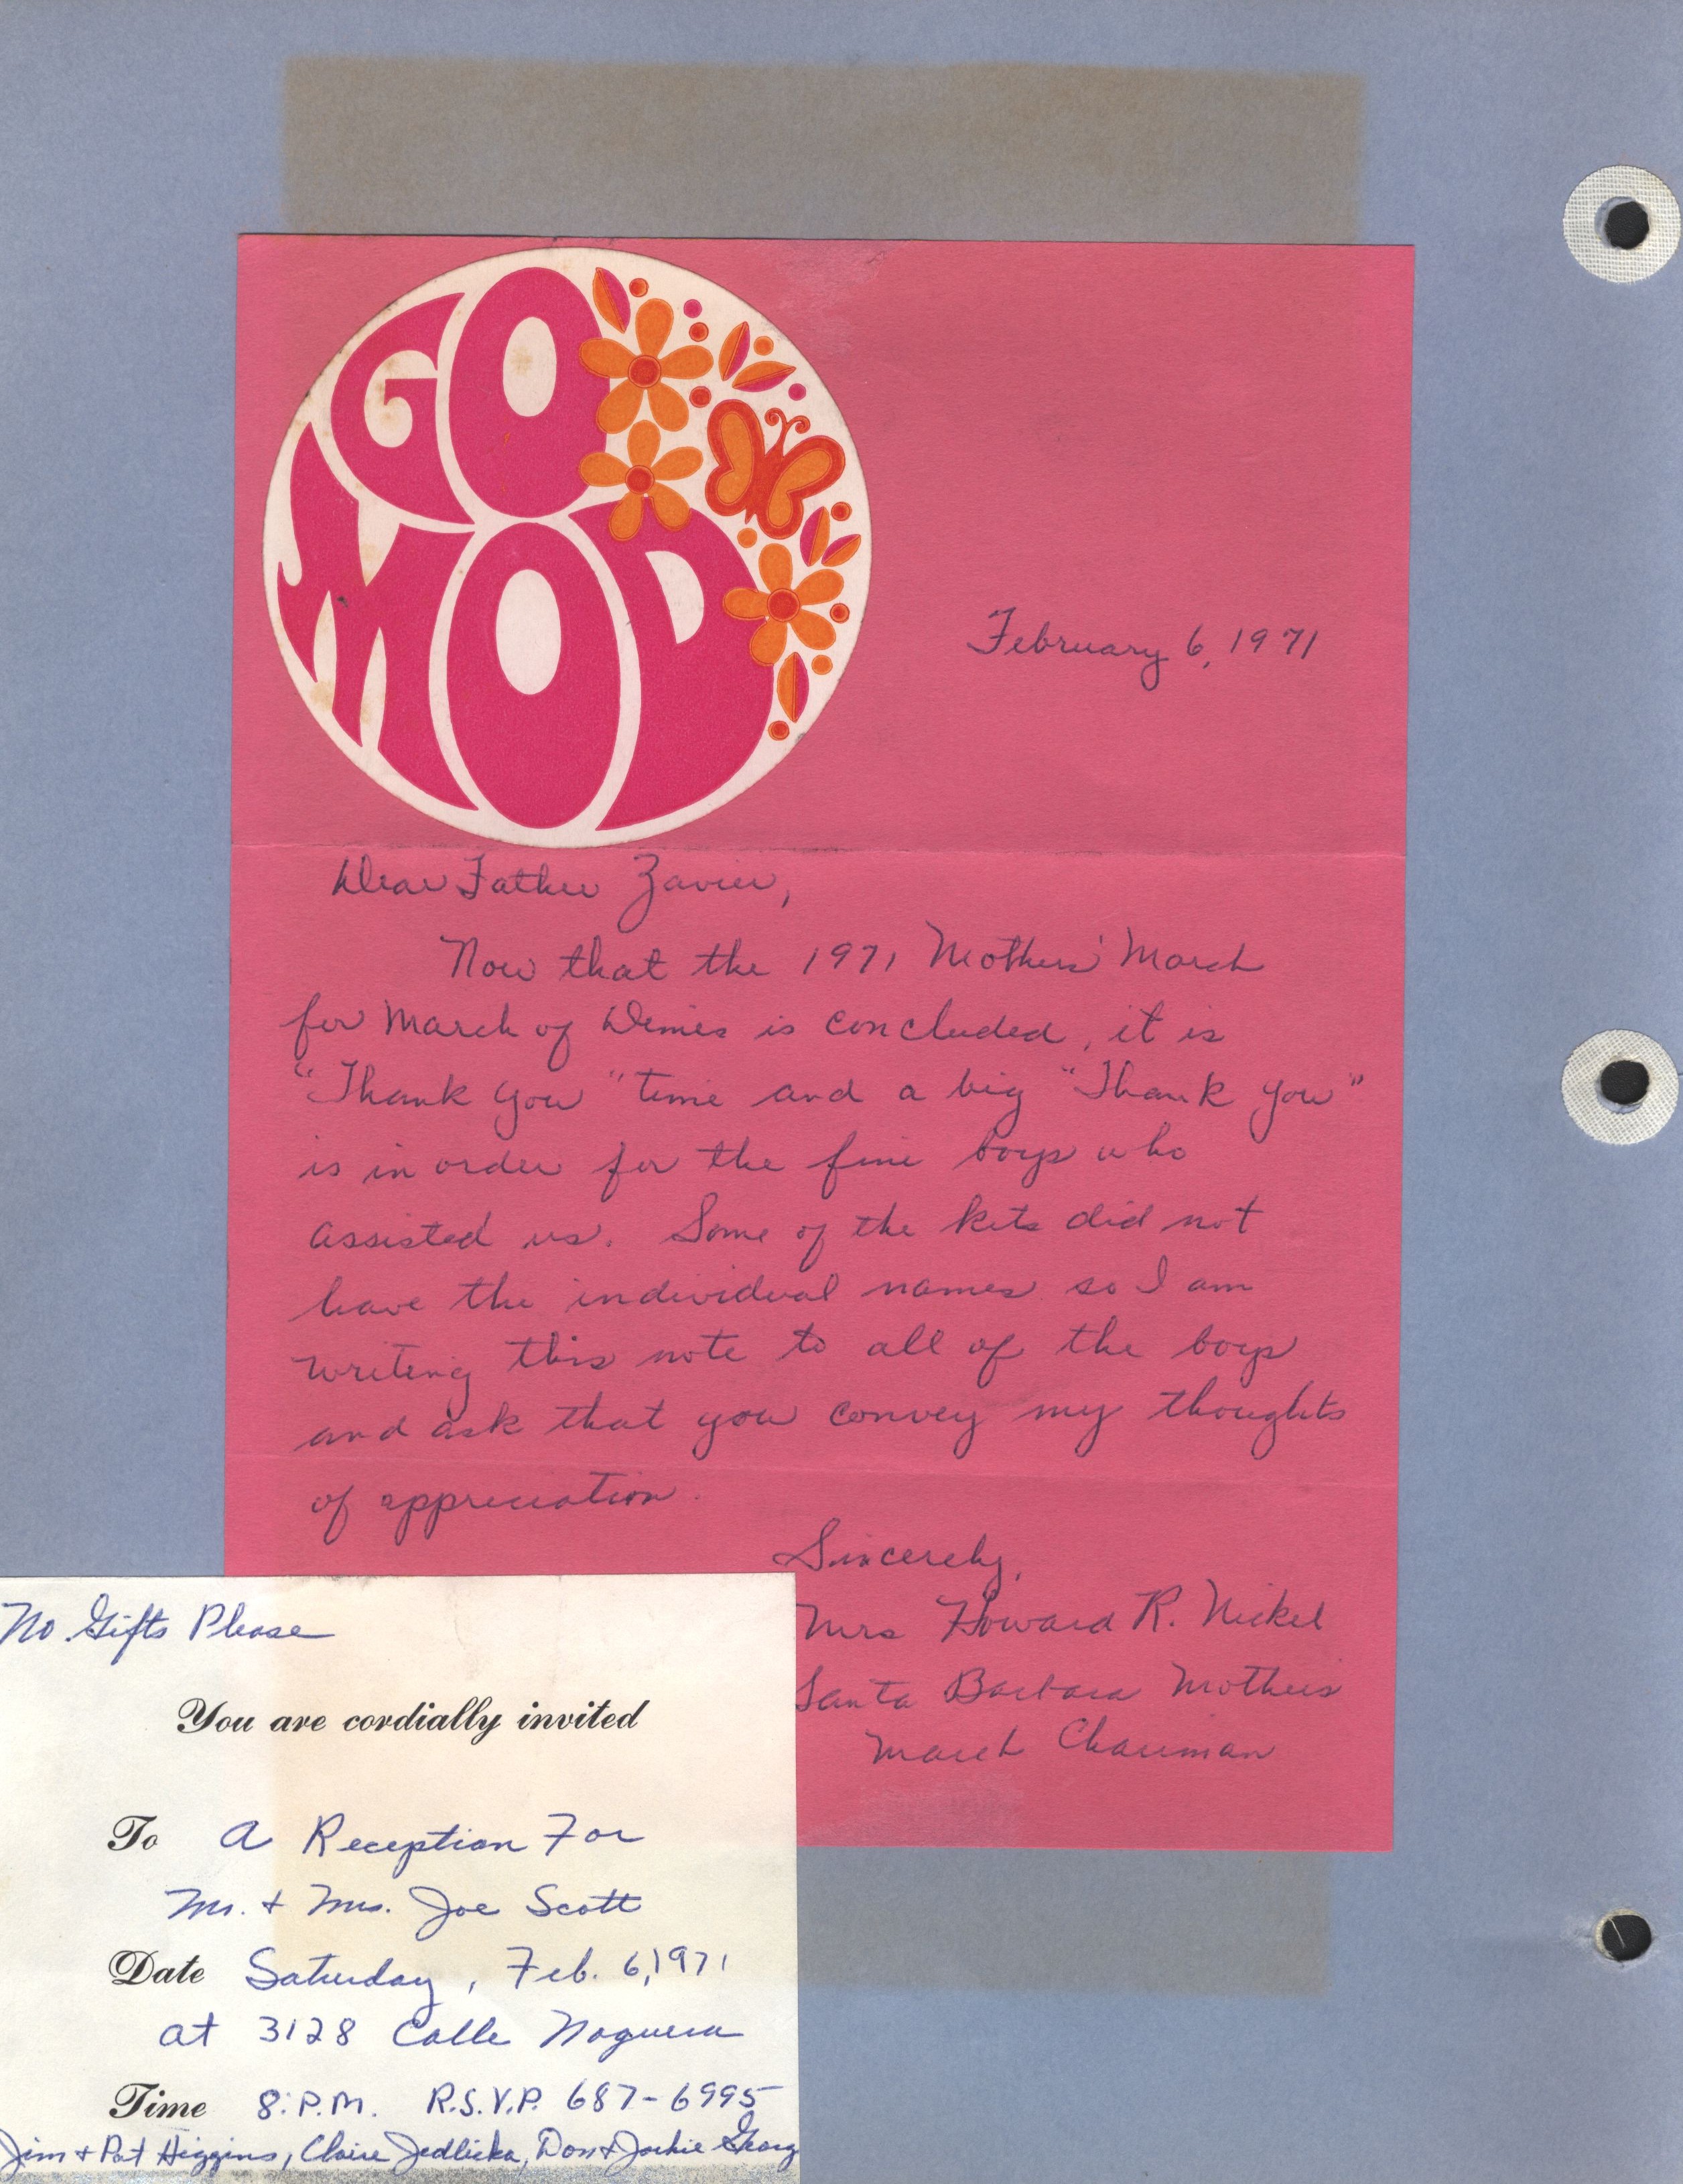 GO
MOD
February 6, 1971
Dear Father Zavier,
Now that the 1971 Mothers' March
for March of Dimes is concluded, it is
"Thank you" time and a big "Thank you"
is in order for the fine boys who
assisted us. Some of the kits did not
have the individual names so I am
writing this note to all of the boys
and ask that you convey my thoughts
of appreciation.
Sincerely,
Mrs Howard R. Nickel
Santa Barbara Mothers
March Chairman
No Gifts Please
You are cordially invited
To A Reception For
Mr. + Mrs. Joe Scott
Date Saturday, Feb. 6, 1971
at 3128 Calle Noguera
Time 8:P.M. R.S.V.P. 687-6995
Jim + Pat Higgins, Claire Jedlicka, Don + Jackie